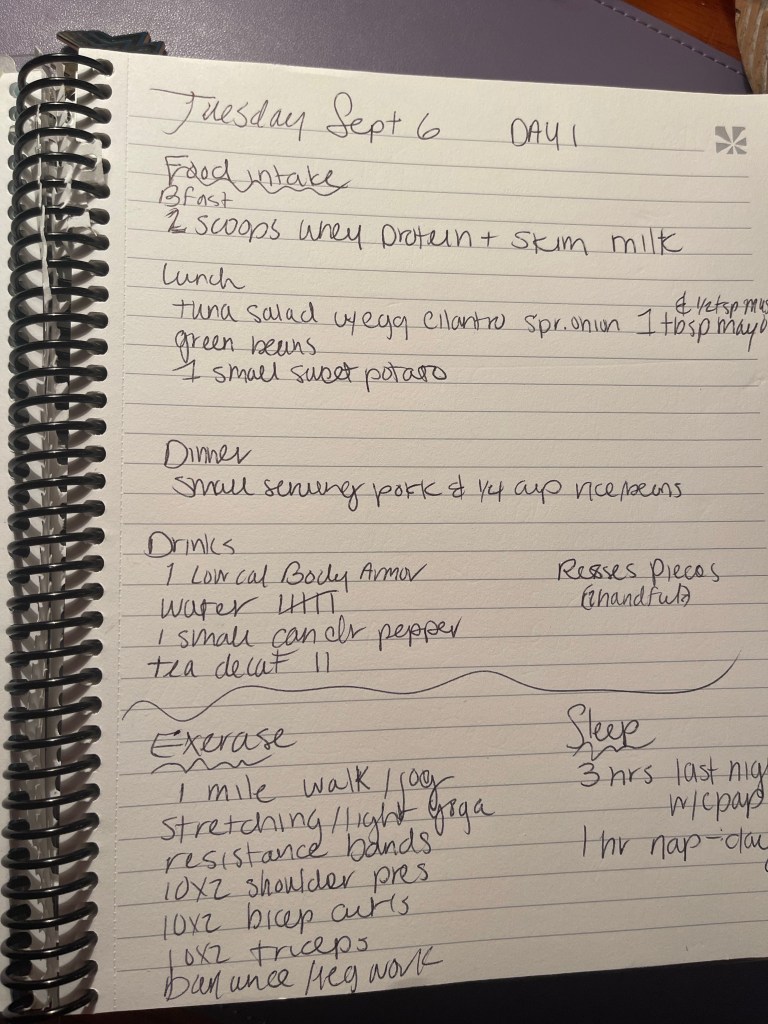 Tuesday Sept 6 DAY 1
Food intake
Bfast
2 scoops whey protein + skim milk
Lunch
& 1/2 tsp mus
tuna salad w/egg cilantro spr. onion 1 tbsp mayo
green beans
1 small sweet potato
Dinner
small serving pork & 1/4 cup rice/beans
Drinks
1 Low cal Body Armor
Reeses Pieces
water
(1handful)
1 small can dr pepper
tea decaf II
Exercise
Sleep
1 mile walk/jog
3 hrs last nig
stretching/light yoga
w/cpap
resistance bands
1 hr nap-day
10X2 shoulder pres
10X2 bicep curls
10X2 triceps
balance/leg work